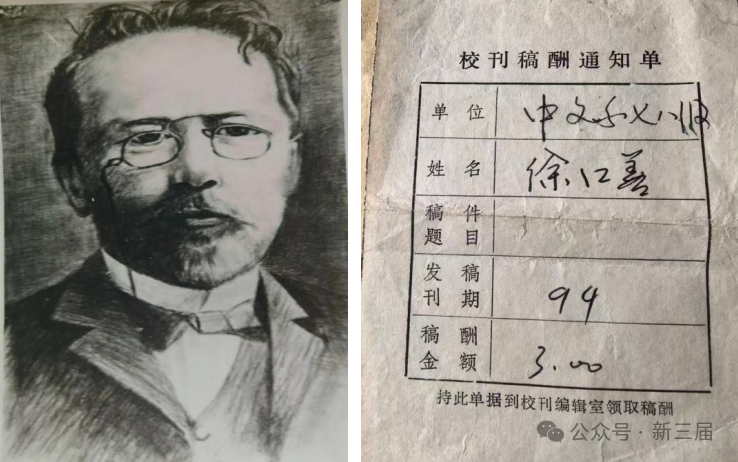 校刊稿酬通知单
单位 中文系七八级
姓名 徐江善
稿件
题目
发稿
刊期 94
稿酬
金额 3.00
持此单据到校刊编辑室领取稿酬
公众号·新三届